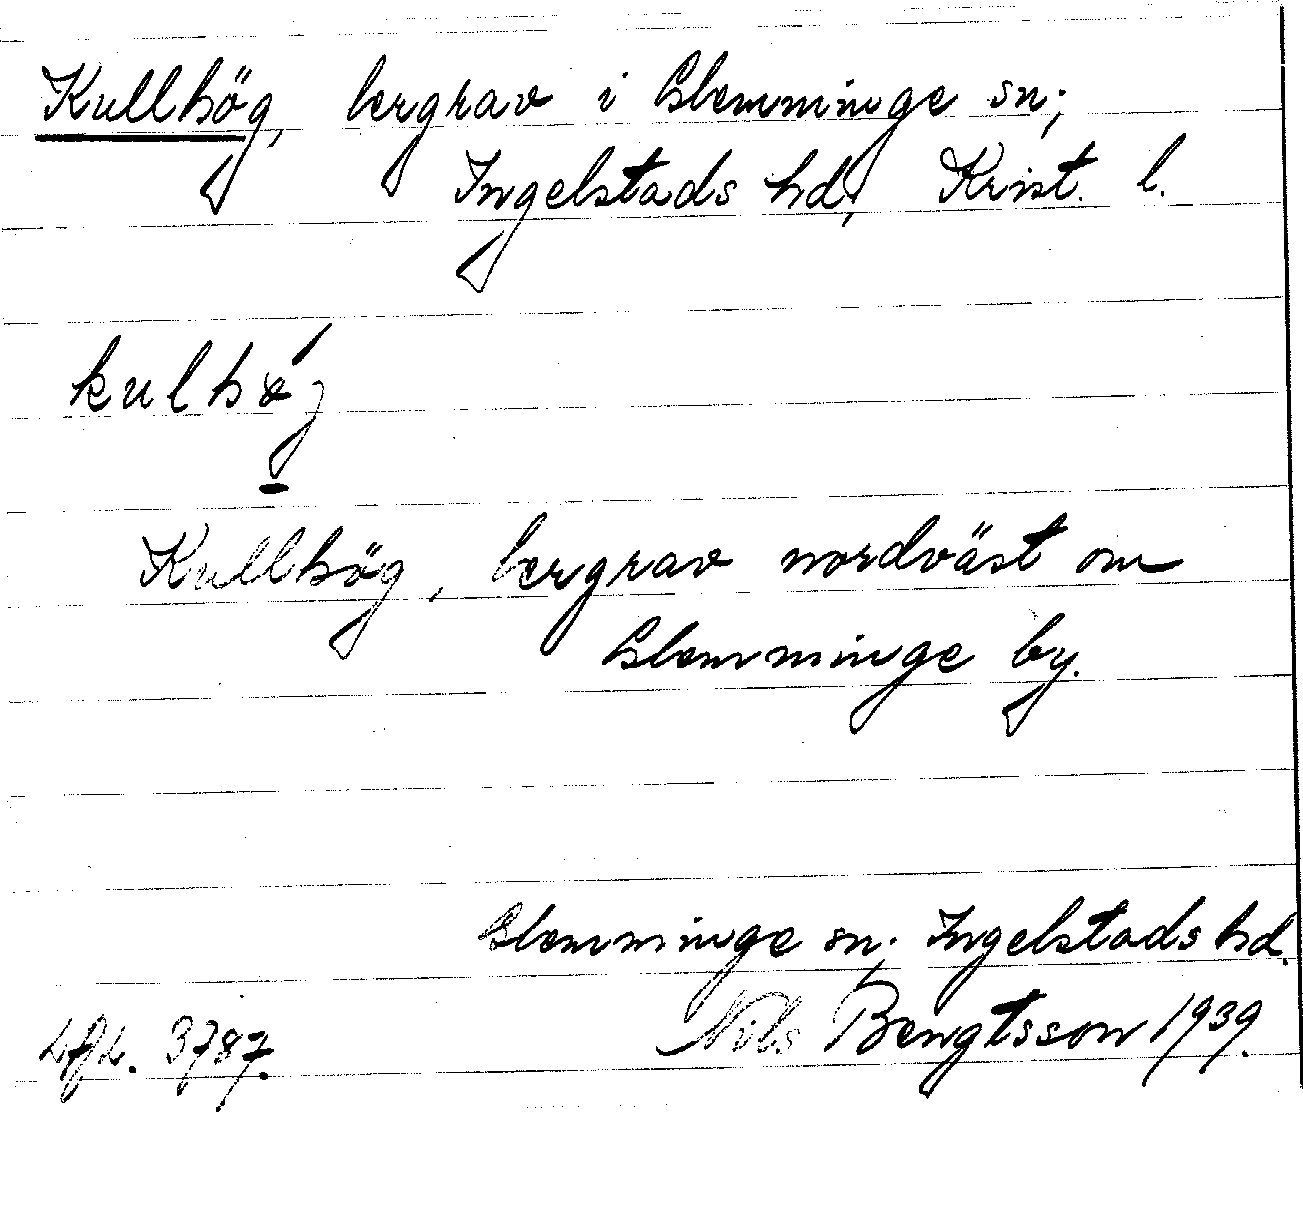 Kullhög, lergrav i Glemminge sn;
Ingelstads hd; Krist. l.
Kullhög, lergrav nordväst om
Glemminge by.
Glemminge sn; Ingelstads hd.
3787. Nils Bengtsson 1939.